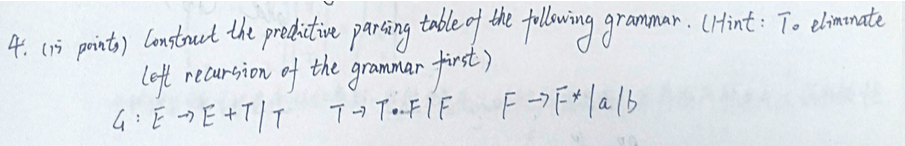 4. (15 points) Construct the predictive parsing table of the following grammar. (Hint: To eliminate
left recursion of the grammar first)
G: E → E+T|T T → T·F|F F → F*|a|b